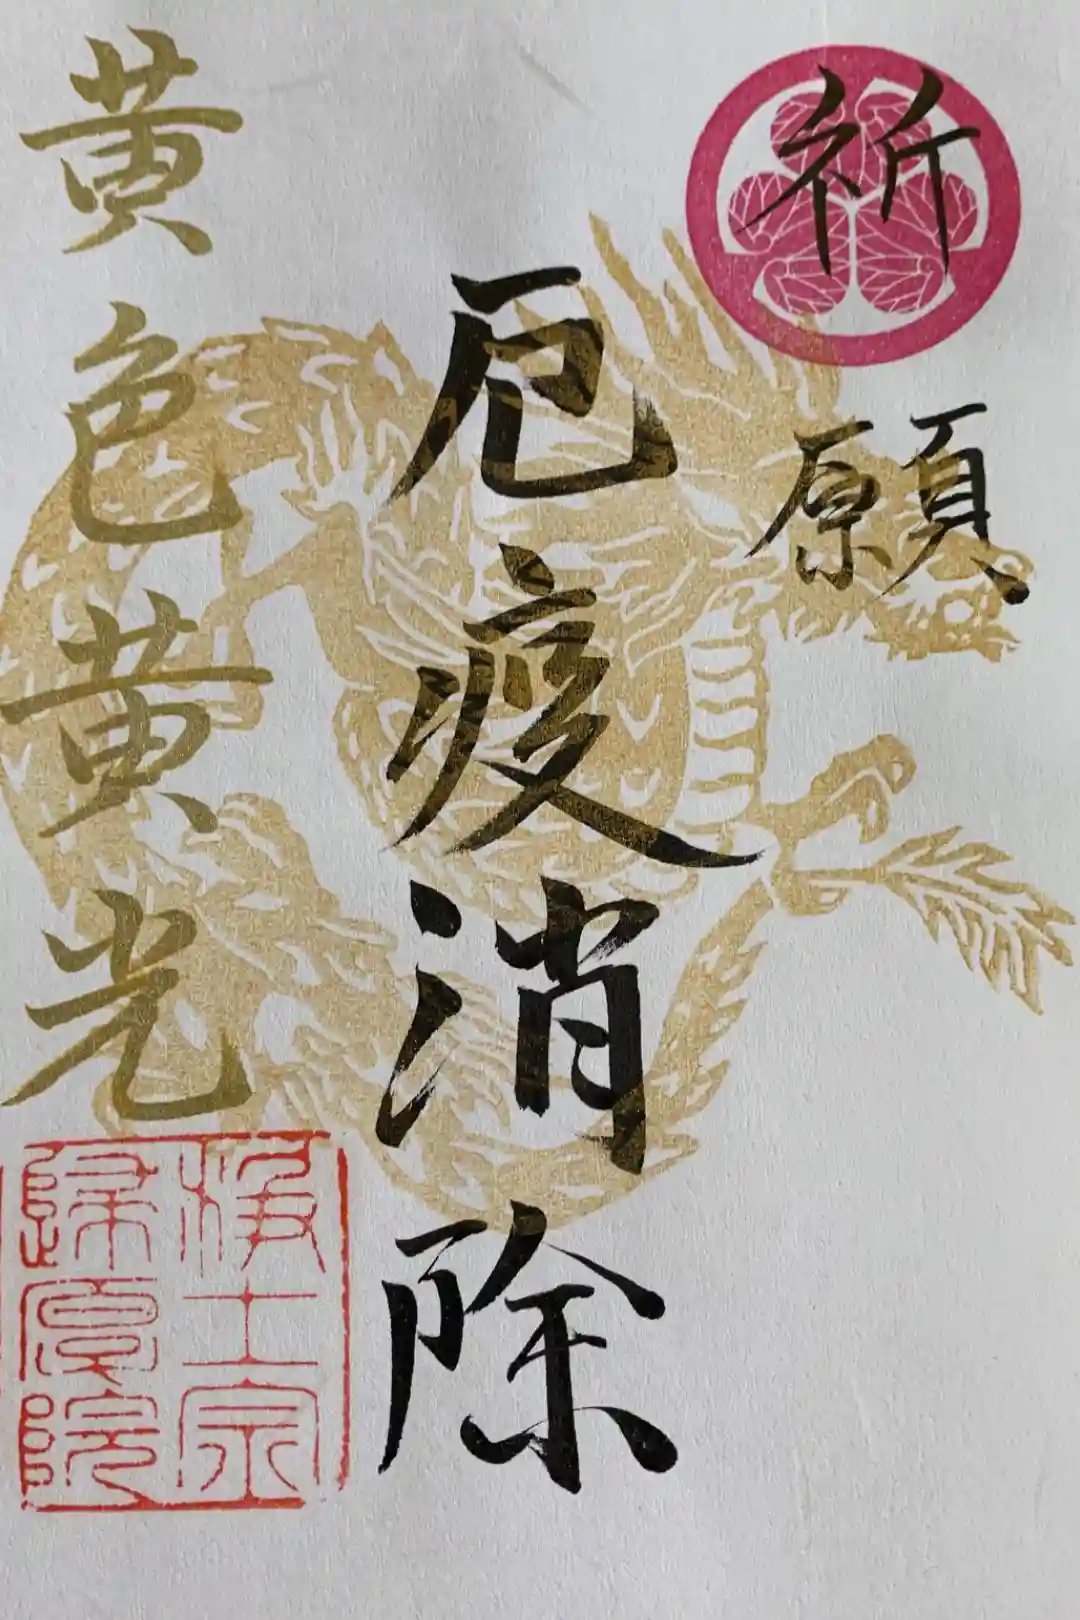 祈願
厄疫消除
黄色黄光
浄土宗
歸命院